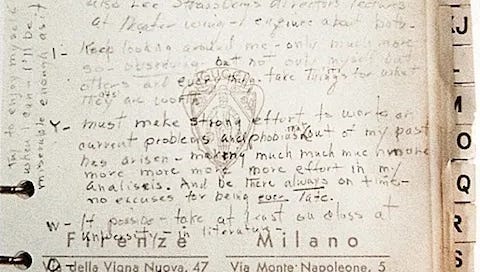 also Lee Strassbergs directors lectures
at theater wing - enquire about both -
I - Keep looking around me - only much more
so - observing - but not only myself but
others and everything - take things for what
they are worth
Y - must make strong effort to work on
current problems and phobias that out of my past
has arisen - making much much much more
more more more more effort in my
analisis. And be there always on time -
no excuses for being ever late.
W - If possible - take at least one class at
university - in literature -
Firenze Milano
Via della Vigna Nuova, 47 Via Monte Napoleone, 5
try to enjoy myself
when I can - I'll be
miserable enough as it
J
L
M
O
Q
R
S